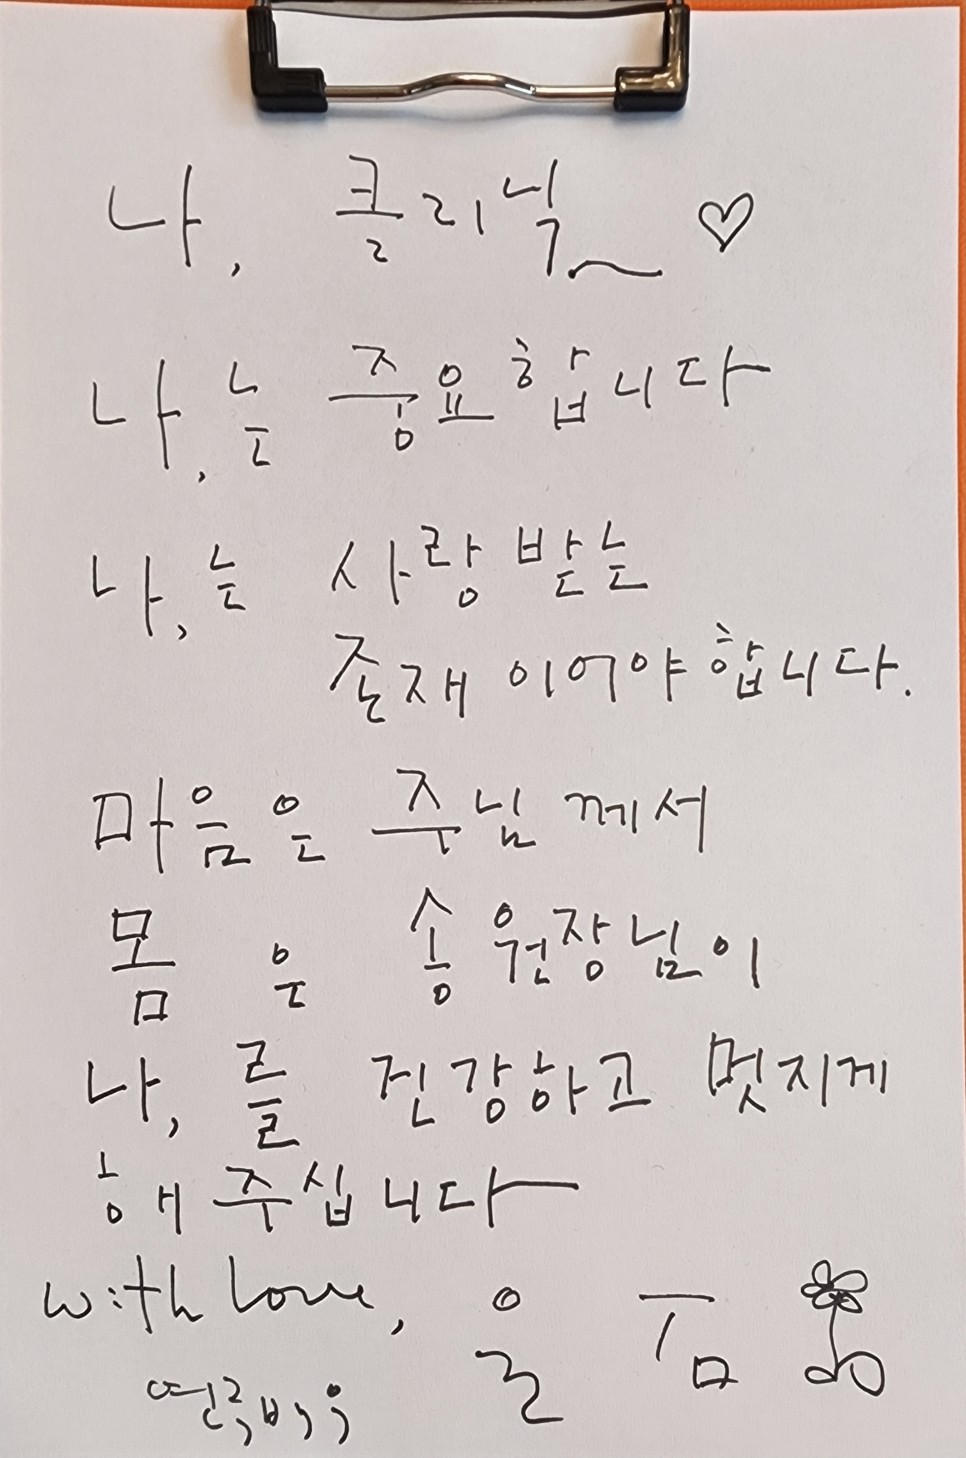 나, 클리닉 ♡
나,는 중요합니다
나,는 사랑받는
존재 이어야합니다.
마음은 주님께서
몸은 송원장님이
나,를 건강하고 멋지게
해주십니다
with love,